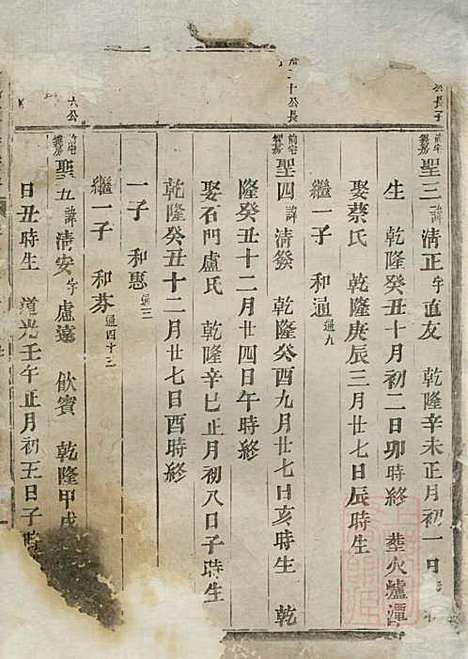 公長子
前宅聖三諱清正字直友 乾隆辛未正月初一日
生 乾隆癸丑十月初二日卯時終 塟火爐潭
娶蔡氏 乾隆庚辰三月廿七日辰時生
繼一子 和通通九
二十公長
前宅聖四諱清發 乾隆癸酉九月廿七日亥時生 乾
隆癸丑十二月廿四日午時終
娶石門盧氏 乾隆辛巳正月初八日子時生
乾隆癸丑十二月廿七日酉時終
一子 和惠通三
繼一子 和芬通四十三
六公
前宅聖五諱清安字盧遠 飲賓 乾隆甲戌
日丑時生 道光壬午正月初五日子時